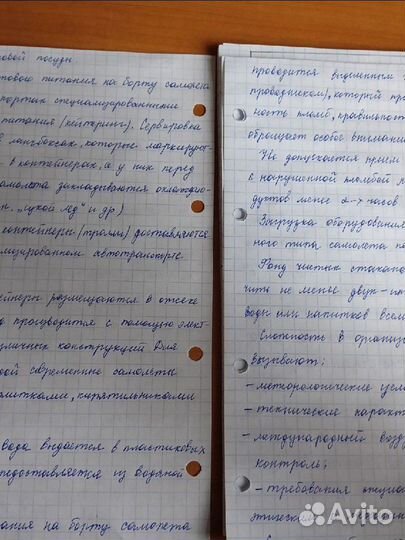 ловой посуды
тового питания на борту самолета
портах специализированными
питания (кейтеринг). Сервировка
в ланчбоксах, которые маркируют-
в контейнерах, а у них перед
самолета закладываются охлаждаю-
"сухой лёд" и др)
контейнеры (тролли) доставляются
лизированном автотранспорте
ейнеры размещаются в отсеке
производится с помощью элект-
зличных конструкций Для
рой современные самолеты
литками, кипятильниками
вода выдается в пластиковых
редоставляется из водяной
ания на борту самолета
проводится выделенным
проводником), который про
ность пломб, правильност
обращает особое внимание
Не допускается прием
с нарушенной пломбой
дуктов менее 2-х часов
Загрузка оборудования
ного типа самолета по
Фонд чистых стакано
чить не менее двух-
воды или напитков всем
Сложность в организ
вызывают:
- метеорологические
- технические характ
- международный возду
контроль;
- требования специа
этическим
Avito